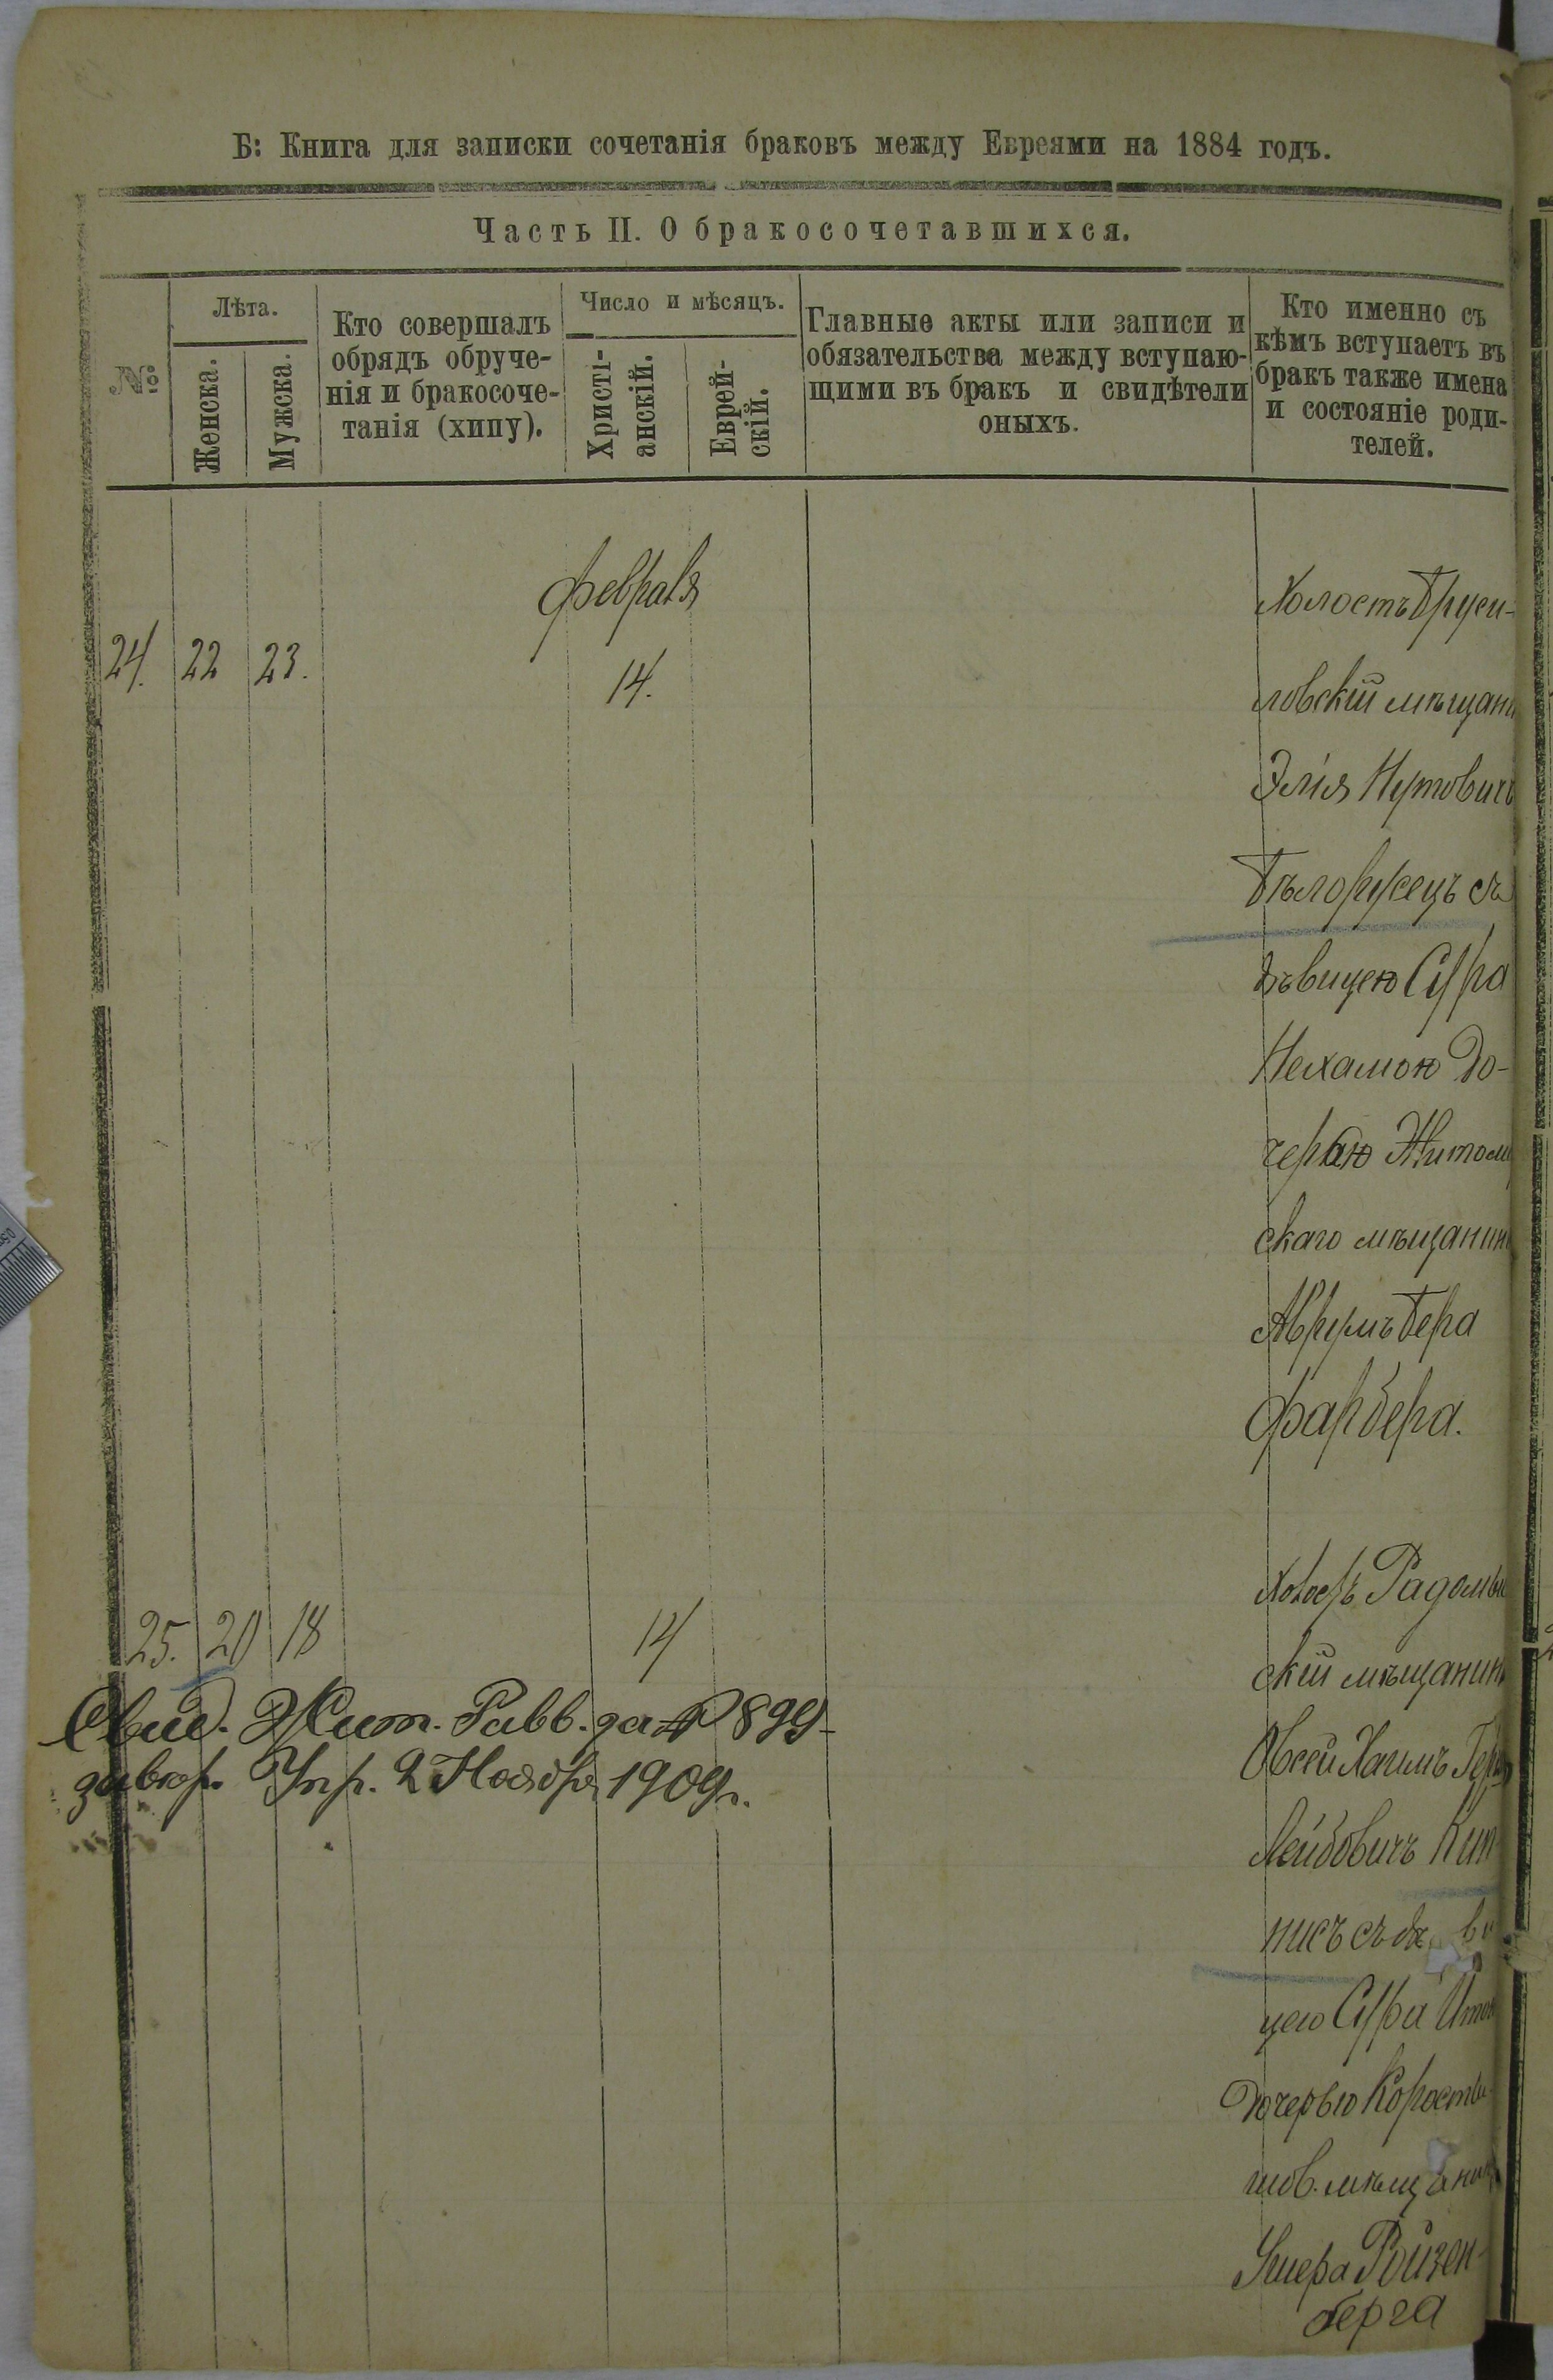 Б: Книга для записки сочетанія браковъ между Евреями на 1884 годъ.
Часть II. О бракосочетавшихся.
№
Лѣта.
Женска.
Мужска.
Кто совершалъ
обрядъ обруче-
нія и бракосоче-
танія (хипу).
Число и мѣсяцъ.
Христі-
анскій.
Еврей-
скій.
Главные акты или записи и
обязательства между вступаю-
щими въ бракъ и свидѣтели
оныхъ.
Кто именно съ
кѣмъ вступаетъ въ
бракъ также имена
и состояніе роди-
телей.
Февраля
24. 22 23. 14.
Холостъ Бруси-
ловскій мѣщани
Элія Нутовичъ
Бѣлоружецъ съ
дѣвицею Сура
Нехамою до-
черью Житом
скаго мѣщанин
Аврумъ Бера
Фарбера.
25. 20 18 14
Холостъ Радомы
скій мѣщанин
Овсей Хаимъ
Лейбовичъ Кип
нисъ съ дѣ ви
цею Сура
Дочерью Корости
шов. мѣщанин
Ушера Ройзен-
берга
Свид. Жит. Равв. за № 899
Упр. 2 Ноября 1909 г.